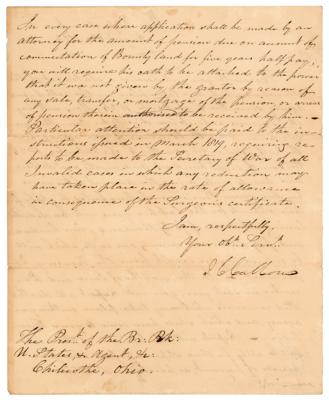 In every case where application shall be made by an
attorney for the amount of pension due on account of
commutation of Bounty land for five years half pay,
you will require his oath to be attached to the power
that it was not given by the grantor by reason of
any sale, transfer, or mortgage of the pension, or arrears
of pension therein authorised to be received by him.
Particular attention should be paid to the in-
structions issued in March 1819, requiring re-
ports to be made to the Secretary of War of all
Invalid cases in which any reduction may
have taken place in the rate of allowance
in consequence of the Surgeons certificate.
I am, respectfully,
Your Obt. Servt.
J. C. Calhoun
The Prest. of the Br. Bk:
U. States, & Agent, &c.
Chilicothe, Ohio.